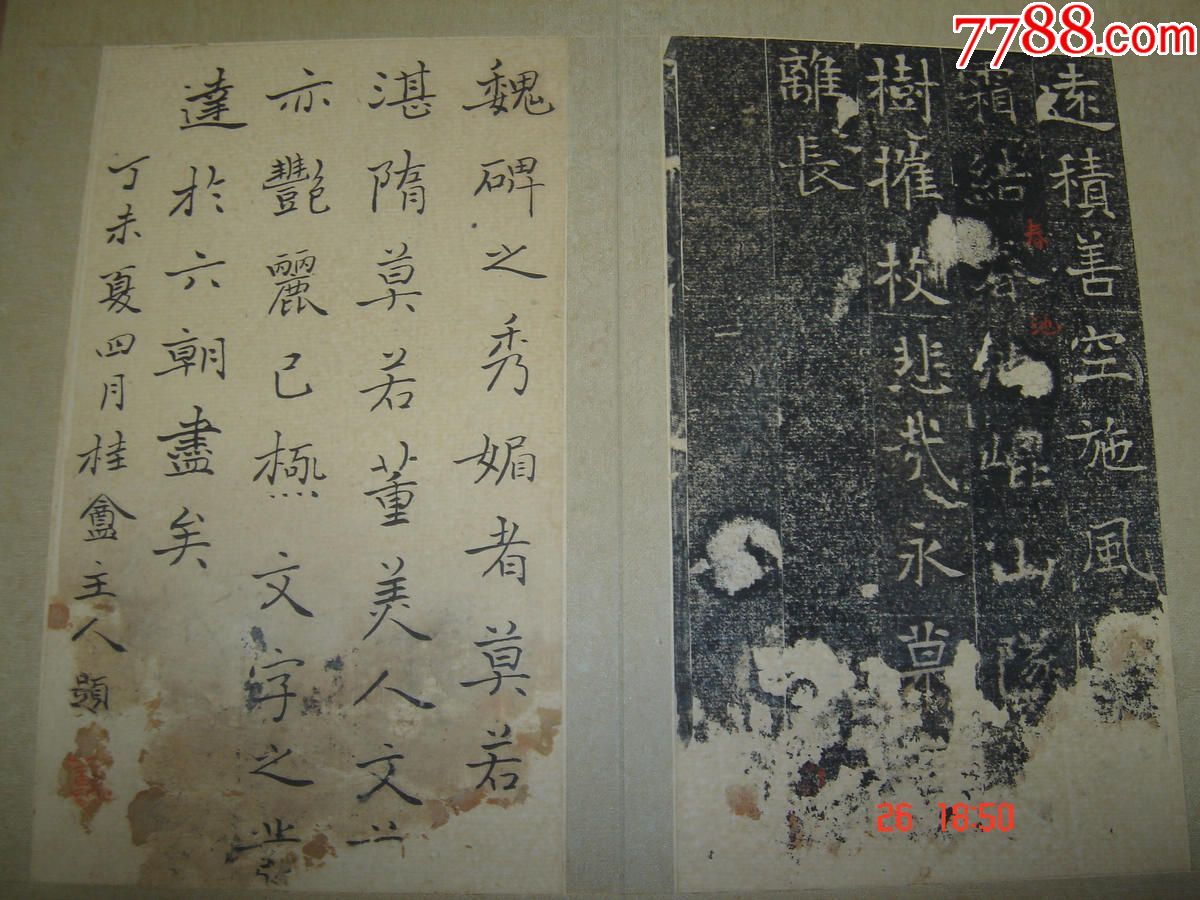 7788.com
遠積善空施風
霜結谷仙崐山隊
春
池
樹摧枝悲哉永
離長
二
魏碑之秀媚者莫若
湛隋莫若董美人文
亦艷麗已極文字之發
達於六朝盡矣
丁未夏四月桂盦主人題
26 18:50